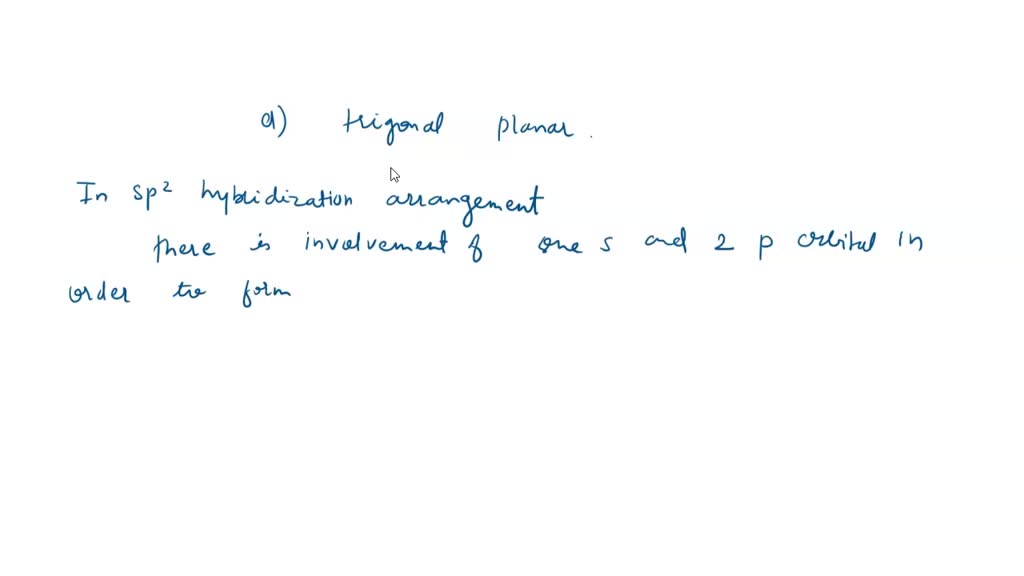 a) trigonal planar.
In sp² hybridization arrangement
there is involvement of one s and 2 p orbital in
order to form